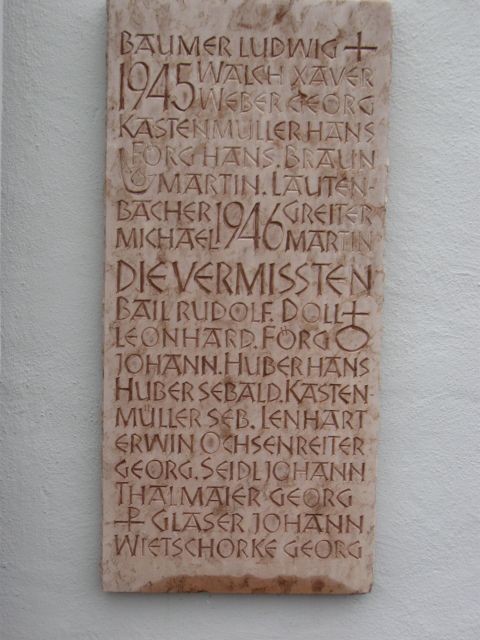 BAUMER LUDWIG +
1945 WALCH XAVER
WEBER GEORG
KASTENMÜLLER HANS
FÖRG HANS. BRAUN
MARTIN. LAUTEN-
BACHER 1946 GREITER
MICHAEL MARTIN
DIE VERMISSTEN
BAIL RUDOLF. DOLL
LEONHARD. FÖRG
JOHANN. HUBER HANS
HUBER SEBALD. KASTEN-
MÜLLER SEB. LENHART
ERWIN OCHSENREITER
GEORG. SEIDL JOHANN
THALMAIER GEORG
GLASER JOHANN
WIETSCHORKE GEORG